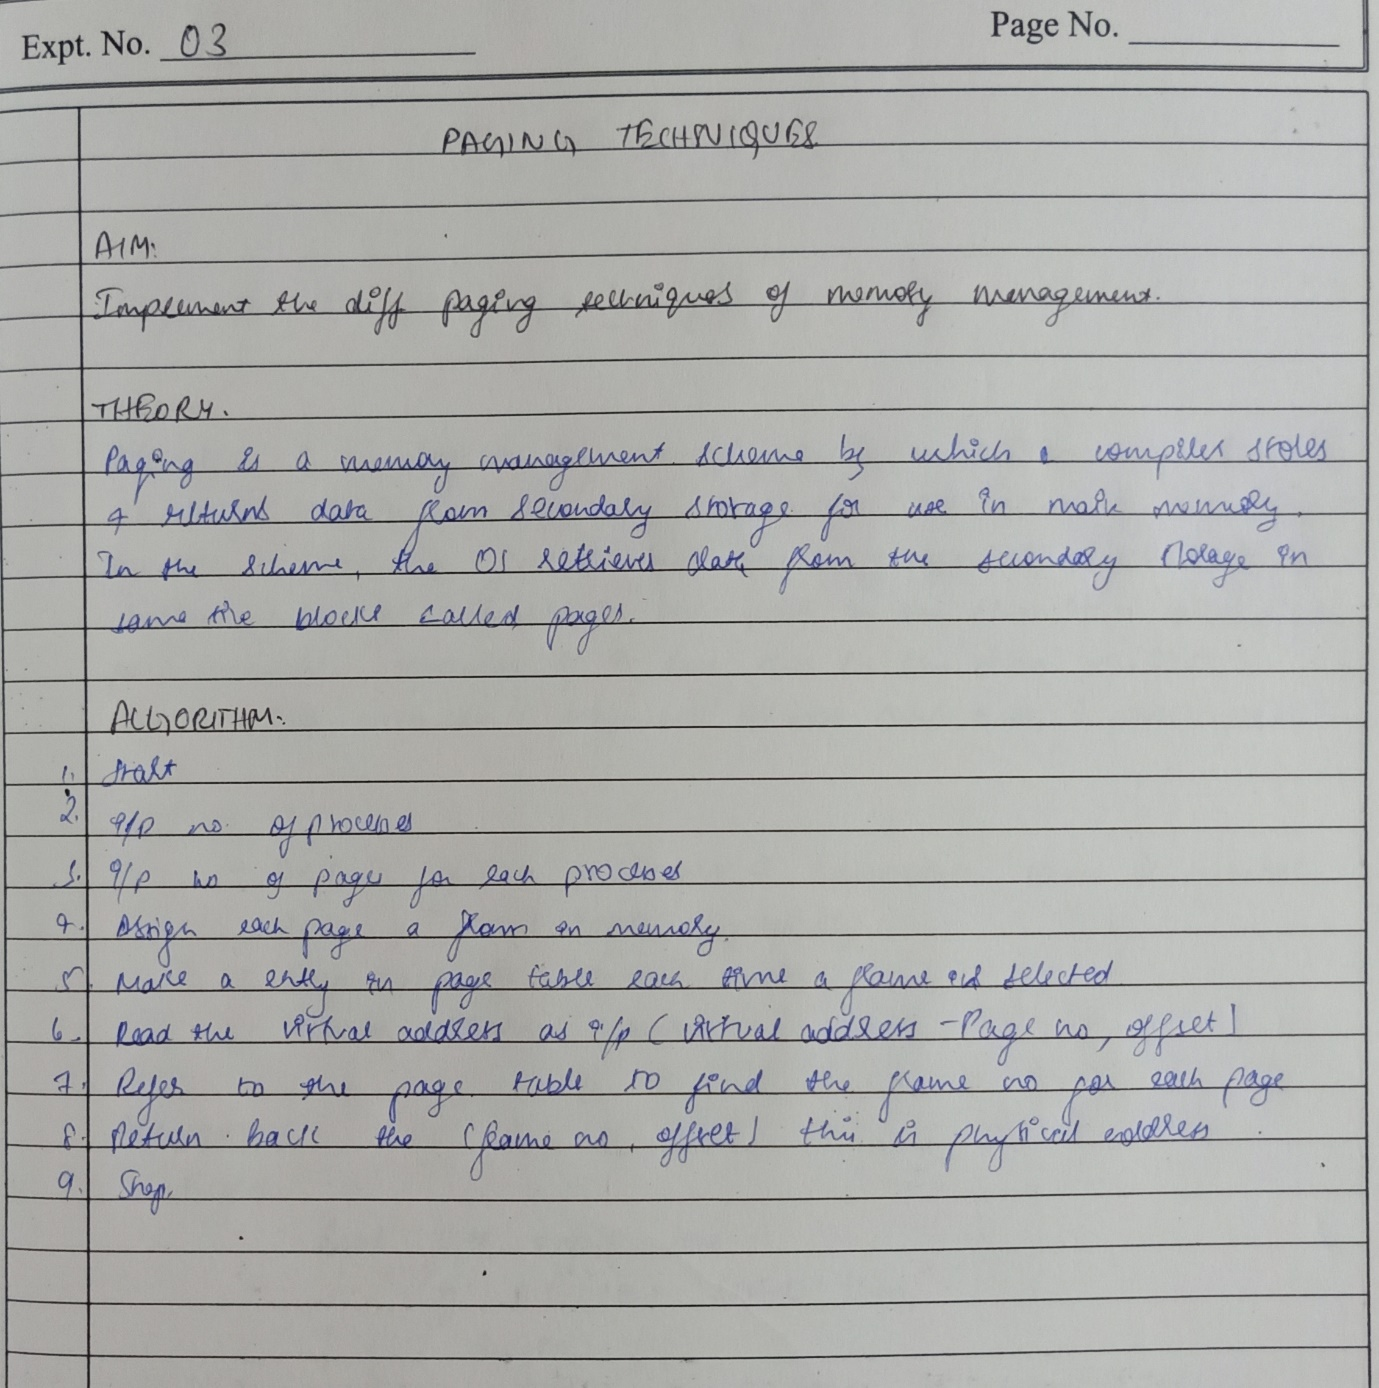 Expt. No. 03
Page No.
PAGING TECHNIQUES
AIM:
Implement the diff paging techniques of memory management.
THEORY.
Paging is a memory management scheme by which a compiler stores
& returns data from secondary storage for use in main memory.
In the scheme, the OS retrieves data from the secondary storage in
same the blocks called pages.
ALGORITHM:
1. Start
2. i/p no. of processes
3. i/p no of pages for each processes
4. Assign each page a fram in memory.
5. Make a entry in page table each time a frame is selected
6. Read the virtual address as i/p (virtual address - Page no, offset)
7. Refer to the page table to find the frame no for each page
8. Return back the (frame no, offset) this is physical address
9. Stop.